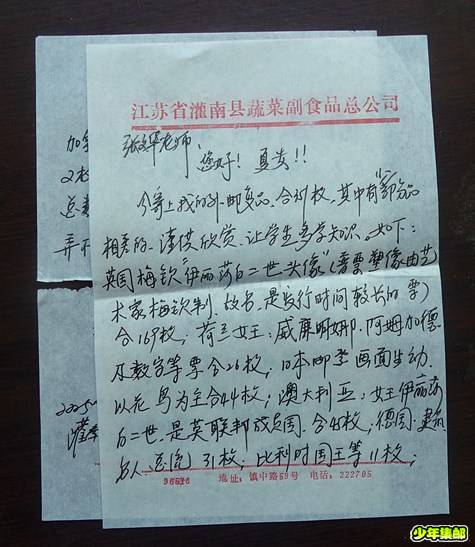 江苏省灌南县蔬菜副食品总公司
老师:
您好! 夏安!!
今寄上我的外邮品、合计枚、其中有
相差的、谨供欣赏、让学生多学知识。如下:
英国梅钦"伊丽莎白二世头像"(普票塑像由艺
大家梅钦制、故名、是发行时间较长的票)
合169枚; 荷兰女王:威廉明娜、阿姆加德
及数字等票合26枚; 日本邮坐画面生动、
以花鸟为主合44枚; 澳大利亚:女王伊丽莎
白二世、是英联邦成员国、合45枚; 德国:建筑
名人、总统 31枚; 比利时国王等11枚;
地址:镇中路59号 电话:222705
总
弄
2005
灌
少年集邮